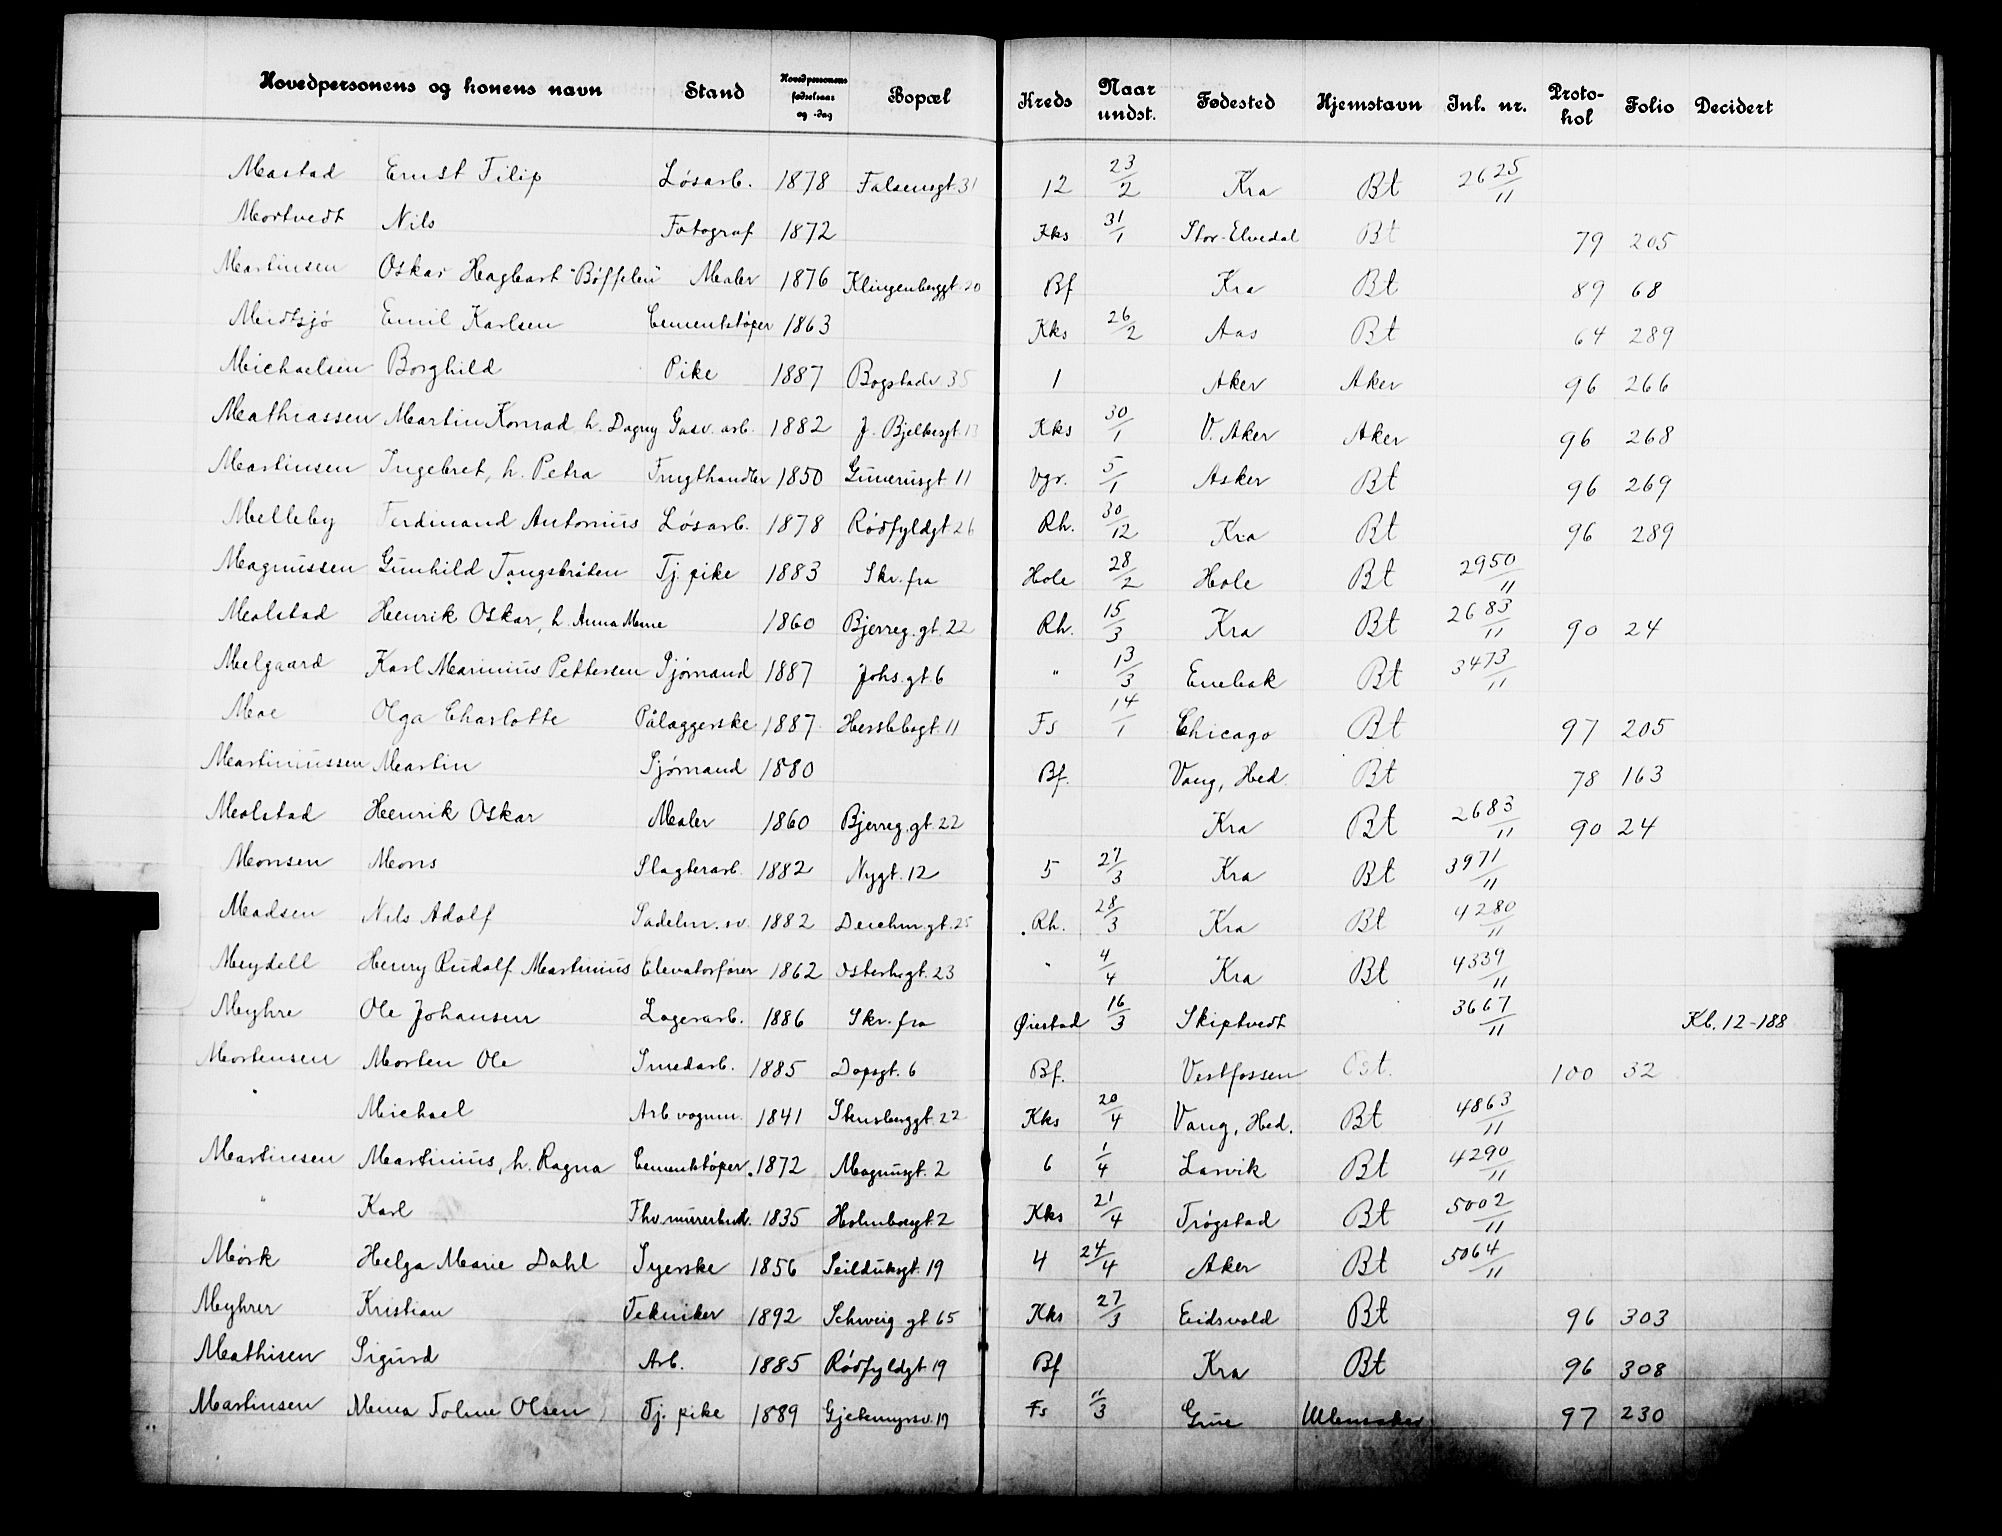 Hovedpersonens og konens navn Stand Hovedpersonens fødselsaar og -dag Bopæl Kreds Naar undst. Fødested Hjemstavn Inl. nr. Protokol Folio Decidert
Mastad Ernst Filip Løsarb. 1878 Falsensgt. 31 12 23/2 Kra Bt 2625/11
Mortvedt Nils Fotograf 1872 Kks 31/1 Stor-Elvedal Bt 79 205
Martinsen Oskar Hagbart "Bøffelen" Maler 1876 Klingenberggt. 20 Bf Kra Bt 89 68
Midtsjø Emil Karlsen Cementstøper 1863 Kks 26/2 Aas Bt 64 289
Michaelsen Borghild Pike 1887 Bogstadv. 35 1 Aker Aker 96 266
Mathiassen Martin Konrad h. Dagny Gasv. arb. 1882 J. Bjelkesgt. 13 Kks 30/1 V. Aker Aker 96 268
Martinsen Ingebret, h. Petra Frugthandler 1850 Gunerusgt 11 Vgr. 5/1 Asker Bt 96 269
Melleby Ferdinand Antonius Løsarb. 1878 Rødfyldgt 26 Rh. 30/12 Kra Bt 96 289
Magnussen Gunhild Tangsbråten Tj. pike 1883 Skr. fra Hole 28/2 Hole Bt 2950/11
Malstad Henrik Oskar, h. Anna Marie 1860 Bjerreg. gt. 22 Rh. 15/3 Kra Bt 2683/11 90 24
Melgaard Karl Marinius Pettersen Sjømand 1887 Johs. gt 6 " 13/3 Enebak Bt 3473/11
Moe Olga Charlotte Pålæggerske 1887 Herslebsgt. 11 Fs 14/1 Chicago Bt 97 205
Martiniussen Martin Sjømand 1880 Bf. Vang, Hed. Bt 78 163
Malstad Henrik Oskar Maler 1860 Bjerreg. gt. 22 Kra Bt 2683/11 90 24
Monsen Mons Slagterarb. 1882 Nygt. 12 5 27/3 Kra Bt 3971/11
Madsen Nils Adolf Sadelm. sv. 1882 Deichm. gt. 25 Rh. 28/3 Kra Bt 4280/11
Meydell Henry Rudolf Martinius Elevatorfører 1862 Osterhsgt. 23 " 4/4 Kra Bt 4339/11
Myhre Ole Johansen Lagerarb. 1886 Skr. fra Øiestad 16/3 Skiptvedt 3667/11 Kl. 12-188
Mortensen Morten Ole Smedarb. 1885 Dopsgt. 6 Bf. Vestfossen 100 32
" Michael Arb vognm. 1841 Stensberggt. 22 Kks 20/4 Vang, Hed. Bt 4863/11
Martinsen Martinius, h. Ragna Cementstøper. 1872 Magnusgt. 2 6 1/4 Larvik Bt 4290/11
" Karl Fhv. murerhnd. 1835 Holmboesgt. 2 Kks 21/4 Trøgstad Bt 5002/11
Mørk Helga Marie Dahl Syerske 1856 Seilduksgt. 19 4 24/4 Aker Bt 5064/11
Myhrer Kristian Tekniker 1892 Schweig. gt 65 Kks 27/3 Eidsvold Bt 96 303
Mathisen Sigurd Arb. 1885 Rødfyldgt 19 Bf Kra Bt 96 308
Martinsen Mina Toline Olsen Tj. pike 1889 Gjetemyrsv. 19 Fs 11/3 Grue Ullensaker 97 230